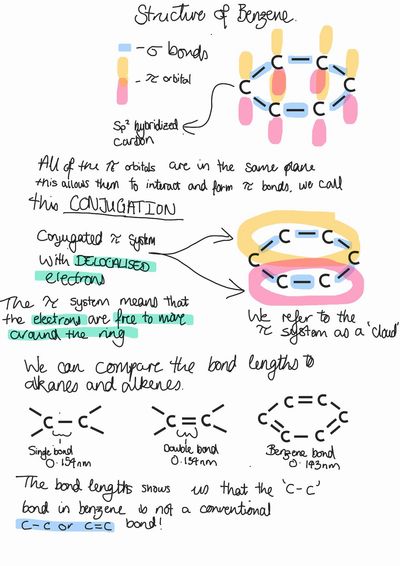 Structure of Benzene.
- σ bonds
- π orbital
C C C C C C
Sp² hybridized
carbon
All of the π orbitals are in the same plane
this allows them to interact and form π bonds, we call
this CONJUGATION
Conjugated π system
with DELOCALISED
electrons
C C C C C C
The π system means that
the electrons are free to move
around the ring
We refer to the
π system as a 'cloud'
We can compare the bond lengths to
alkanes and alkenes.
C-C
C=C
C=C C C C C
Single bond
0.154nm
Double bond
0.134nm
Benzene bond
0.143nm
The bond lengths shows us that the 'C-C'
bond in benzene is not a conventional
C-C or C=C bond!